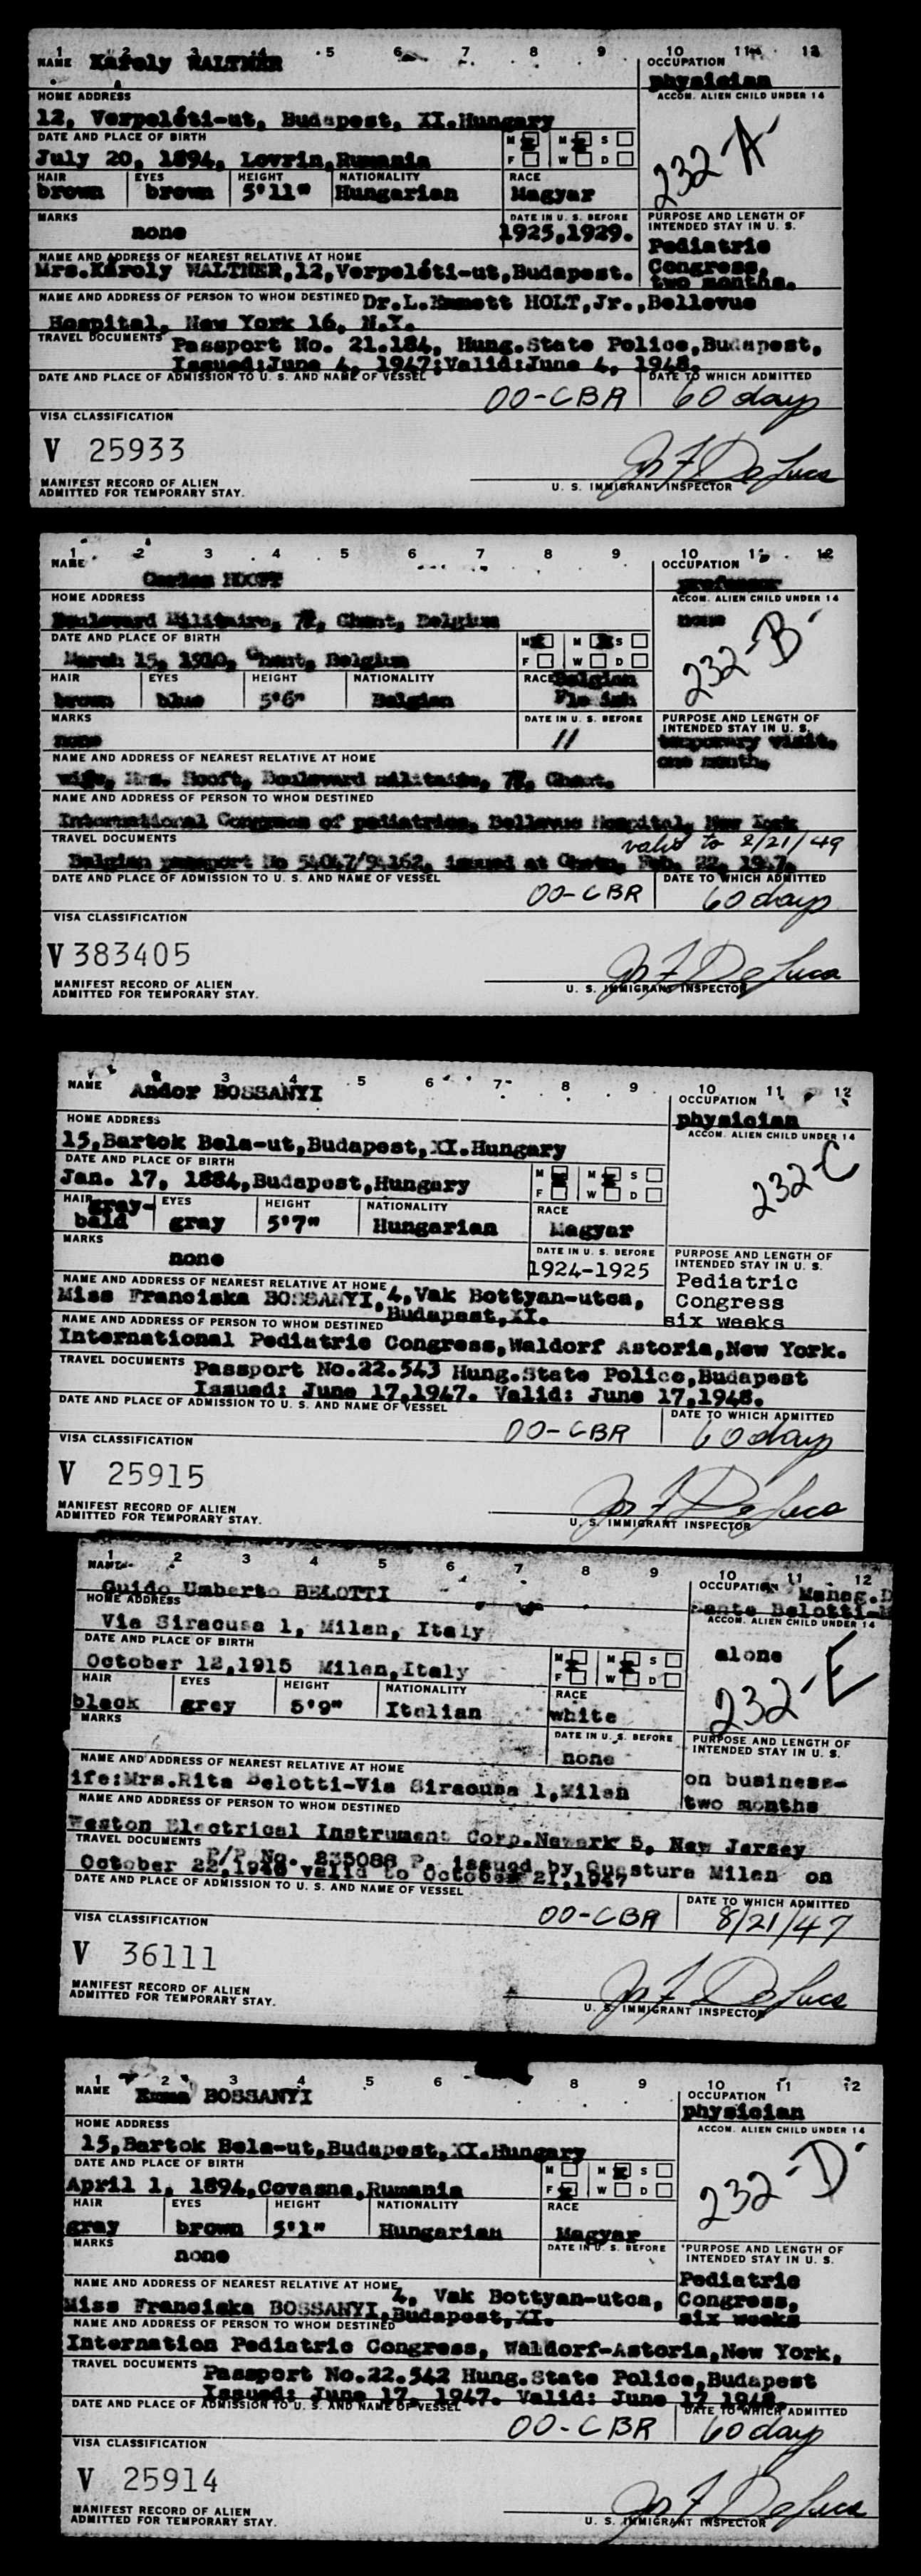 1 2 3 4 5 6 7 8 9 10 11 12
NAME Károly WALTNER OCCUPATION
physician
HOME ADDRESS ACCOM. ALIEN CHILD UNDER 14
12, Verpeléti-ut, Budapest, XI.Hungary
DATE AND PLACE OF BIRTH M M S
July 20, 1894, Lovrin,Rumania F W D
232-A-
HAIR EYES HEIGHT NATIONALITY RACE
brown brown 5'11" Hungarian Magyar
MARKS DATE IN U. S. BEFORE PURPOSE AND LENGTH OF INTENDED STAY IN U. S.
none 1925,1929. Pediatric
NAME AND ADDRESS OF NEAREST RELATIVE AT HOME Congress,
Mrs.Károly WALTNER,12,Verpeléti-ut,Budapest. two months.
NAME AND ADDRESS OF PERSON TO WHOM DESTINED Dr.L.Emmett HOLT,Jr.,Bellevue
Hospital, New York 16, N.Y.
TRAVEL DOCUMENTS Passport No. 21.184, Hung.State Police,Budapest,
Issued:June 4, 1947;Valid:June 4, 1948.
DATE AND PLACE OF ADMISSION TO U. S. AND NAME OF VESSEL DATE TO WHICH ADMITTED
00-CBR 60 day
VISA CLASSIFICATION
V 25933
MANIFEST RECORD OF ALIEN
ADMITTED FOR TEMPORARY STAY. U. S. IMMIGRANT INSPECTOR
1 2 3 4 5 6 7 8 9 10 11 12
NAME OCCUPATION
HOOFT professor
HOME ADDRESS ACCOM. ALIEN CHILD UNDER 14
Boulevard Militaire, Ghent, Belgium none
DATE AND PLACE OF BIRTH M M S
March 15, 1910, Ghent, Belgium F W D
232-B-
HAIR EYES HEIGHT NATIONALITY RACE Belgian
brown blue 5'6" Belgian Flemish
MARKS DATE IN U. S. BEFORE PURPOSE AND LENGTH OF INTENDED STAY IN U. S.
none temporary visit,
NAME AND ADDRESS OF NEAREST RELATIVE AT HOME one month,
wife, Mrs. Hooft, Boulevard militaire, Ghent.
NAME AND ADDRESS OF PERSON TO WHOM DESTINED
International Congress of pediatrics, Bellevue Hospital, New York
TRAVEL DOCUMENTS valid to 2/21/49
Belgian passport No issued at Feb. 22, 1947.
DATE AND PLACE OF ADMISSION TO U. S. AND NAME OF VESSEL DATE TO WHICH ADMITTED
00-CBR 60 day
VISA CLASSIFICATION
V 383405
MANIFEST RECORD OF ALIEN
ADMITTED FOR TEMPORARY STAY. U. S. IMMIGRANT INSPECTOR
3 4 5 6 7 8 9 10 11 12
NAME Andor BOSSANYI OCCUPATION
physician
HOME ADDRESS ACCOM. ALIEN CHILD UNDER 14
15,Bartok Bela-ut,Budapest,XI.Hungary
DATE AND PLACE OF BIRTH M M S
Jan. 17, 1884,Budapest,Hungary F W D
232-C
HAIR gray- EYES HEIGHT NATIONALITY RACE
bald gray 5'7" Hungarian Magyar
MARKS DATE IN U. S. BEFORE PURPOSE AND LENGTH OF INTENDED STAY IN U. S.
none 1924-1925 Pediatric
NAME AND ADDRESS OF NEAREST RELATIVE AT HOME Congress
Miss Franciska BOSSANYI,4,Vak Bottyan-utca,
Budapest,XI. six weeks
NAME AND ADDRESS OF PERSON TO WHOM DESTINED
International Pediatric Congress,Waldorf Astoria,New York.
TRAVEL DOCUMENTS Passport No.22.543 Hung.State Police,Budapest
Issued: June 17,1947. Valid: June 17,1948.
DATE AND PLACE OF ADMISSION TO U. S. AND NAME OF VESSEL DATE TO WHICH ADMITTED
00-CBR 60 day
VISA CLASSIFICATION
V 25915
MANIFEST RECORD OF ALIEN
ADMITTED FOR TEMPORARY STAY. U. S. IMMIGRANT INSPECTOR
1 2 3 4 5 6 7 8 9 10 11 12
NAME OCCUPATION Manag.D
Guido Umberto BELOTTI Belotti-
HOME ADDRESS ACCOM. ALIEN CHILD UNDER 14
Via Siracusa 1, Milan, Italy alone
DATE AND PLACE OF BIRTH M M S
October 12,1915 Milan,Italy F W D
232-E
HAIR EYES HEIGHT NATIONALITY RACE
black grey 5'9" Italian white
MARKS DATE IN U. S. BEFORE PURPOSE AND LENGTH OF INTENDED STAY IN U. S.
none
NAME AND ADDRESS OF NEAREST RELATIVE AT HOME on business-
ife:Mrs.Rita Belotti-Via Siracusa 1,Milan two months
NAME AND ADDRESS OF PERSON TO WHOM DESTINED
Weston Electrical Instrument Corp.Newark 5, New Jersey
TRAVEL DOCUMENTS P/P No. 235088 P. issued by Questura Milan on
October 22,1946 valid to October 21,1947
DATE AND PLACE OF ADMISSION TO U. S. AND NAME OF VESSEL DATE TO WHICH ADMITTED
00-CBR 8/21/47
VISA CLASSIFICATION
V 36111
MANIFEST RECORD OF ALIEN
ADMITTED FOR TEMPORARY STAY. U. S. IMMIGRANT INSPECTOR
1 2 3 4 5 6 8 9 10 11 12
NAME Emma BOSSANYI OCCUPATION
physician
HOME ADDRESS ACCOM. ALIEN CHILD UNDER 14
15,Bartok Bela-ut,Budapest,XI.Hungary
DATE AND PLACE OF BIRTH M M S
April 1, 1894,Covasna,Rumania F W D
232-D-
HAIR EYES HEIGHT NATIONALITY RACE
gray brown 5'1" Hungarian Magyar
MARKS DATE IN U. S. BEFORE PURPOSE AND LENGTH OF INTENDED STAY IN U. S.
none Pediatric
NAME AND ADDRESS OF NEAREST RELATIVE AT HOME 4, Vak Bottyan-utca, Congress,
Miss Franciska BOSSANYI,Budapest,XI. six weeks
NAME AND ADDRESS OF PERSON TO WHOM DESTINED
Internation Pediatric Congress, Waldorf-Astoria,New York,
TRAVEL DOCUMENTS Passport No.22.542 Hung.State Police,Budapest
Issued: June 17, 1947. Valid: June 17 1948.
DATE AND PLACE OF ADMISSION TO U. S. AND NAME OF VESSEL DATE TO WHICH ADMITTED
00-CBR 60 day
VISA CLASSIFICATION
V 25914
MANIFEST RECORD OF ALIEN
ADMITTED FOR TEMPORARY STAY. U. S. IMMIGRANT INSPECTOR